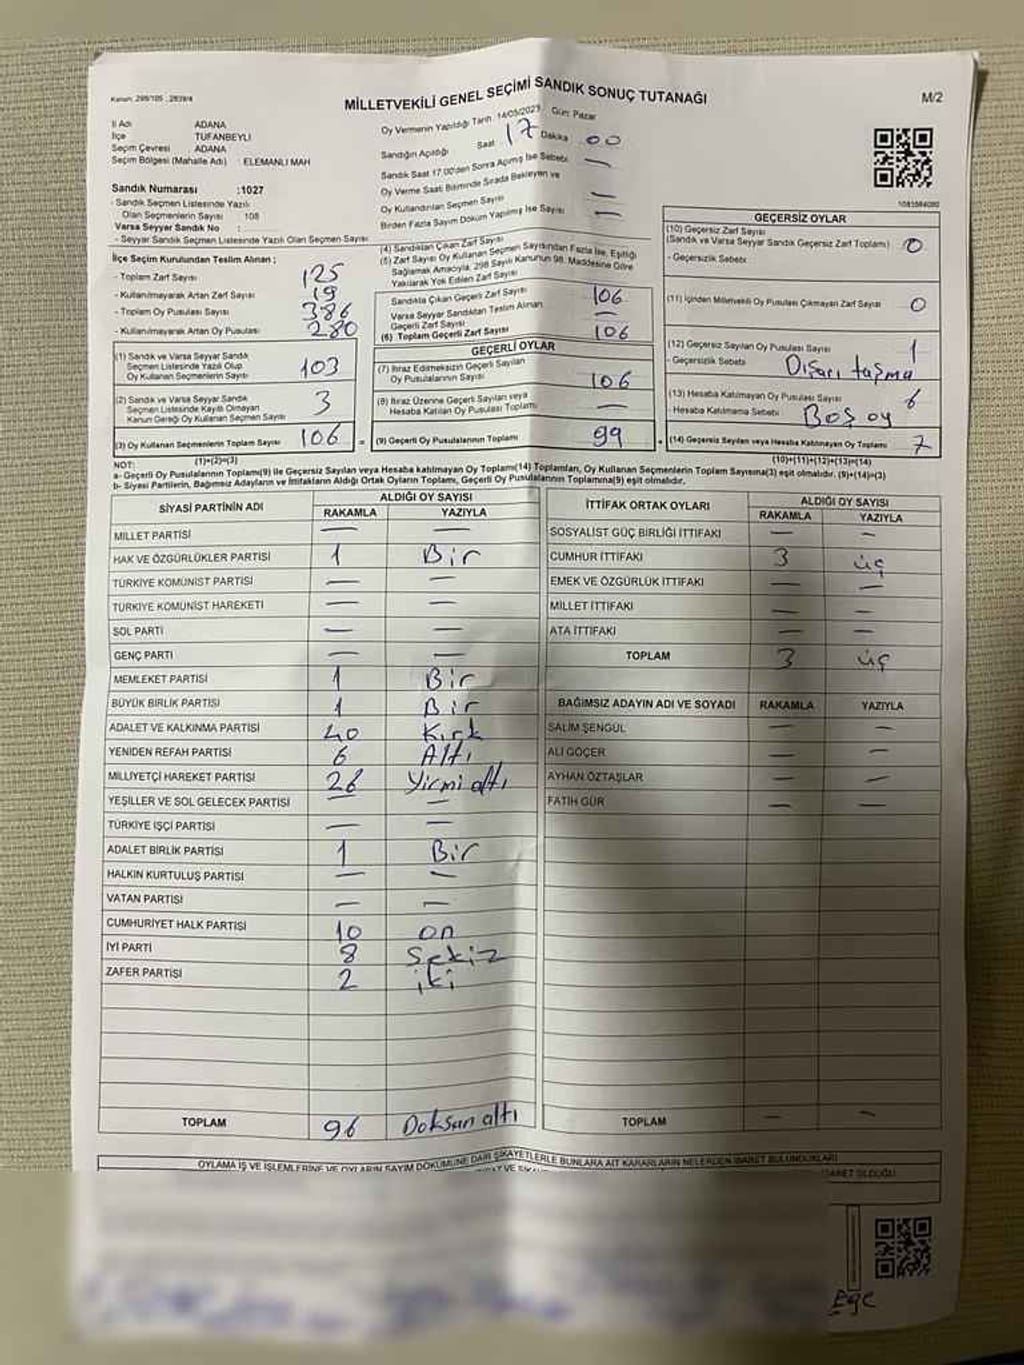 Kanun: 298/105 , 2839/4
MİLLETVEKİLİ GENEL SEÇİMİ SANDIK SONUÇ TUTANAĞI
M/2
İl Adı ADANA
İlçe TUFANBEYLİ
Seçim Çevresi ADANA
Seçim Bölgesi (Mahalle Adı) : ELEMANLI MAH
Sandık Numarası :1027
- Sandık Seçmen Listesinde Yazılı
Olan Seçmenlerin Sayısı 108
Varsa Seyyar Sandık No :
- Seyyar Sandık Seçmen Listesinde Yazılı Olan Seçmen Sayısı
İlçe Seçim Kurulundan Teslim Alınan ;
- Toplam Zarf Sayısı 125
- Kullanılmayarak Artan Zarf Sayısı 19
- Toplam Oy Pusulası Sayısı 386
- Kullanılmayarak Artan Oy Pusulası 280
(1) Sandık ve Varsa Seyyar Sandık
Seçmen Listesinde Yazılı Olup
Oy Kullanan Seçmenlerin Sayısı 103
(2) Sandık ve Varsa Seyyar Sandık
Seçmen Listesinde Kayıtlı Olmayan
Kanun Gereği Oy Kullanan Seçmen Sayısı 3
(3) Oy Kullanan Seçmenlerin Toplam Sayısı 106 =
(1)+(2)=(3)
Oy Vermenin Yapıldığı Tarih 14/05/2023 Gün: Pazar
Sandığın Açıldığı Saat 17 Dakika 00
Sandık Saat 17.00'den Sonra Açılmış İse Sebebi —
Oy Verme Saati Bitiminde Sırada Bekleyen ve
Oy Kullandırılan Seçmen Sayısı —
Birden Fazla Sayım Döküm Yapılmış İse Sayısı —
(4) Sandıktan Çıkan Zarf Sayısı
(5) Zarf Sayısı Oy Kullanan Seçmen Sayısından Fazla İse, Eşitliği
Sağlamak Amacıyla, 298 Sayılı Kanunun 98. Maddesine Göre
Yakılarak Yok Edilen Zarf Sayısı
Sandıkta Çıkan Geçerli Zarf Sayısı 106
Varsa Seyyar Sandıktan Teslim Alınan
Geçerli Zarf Sayısı —
(6) Toplam Geçerli Zarf Sayısı 106
GEÇERLİ OYLAR
(7) İtiraz Edilmeksizin Geçerli Sayılan
Oy Pusulalarının Sayısı 106
(8) İtiraz Üzerine Geçerli Sayılan veya
Hesaba Katılan Oy Pusulası Toplamı —
(9) Geçerli Oy Pusulalarının Toplamı 99 +
1083584080
GEÇERSİZ OYLAR
(10) Geçersiz Zarf Sayısı
(Sandık ve Varsa Seyyar Sandık Geçersiz Zarf Toplamı) 0
- Geçersizlik Sebebi
(11) İçinden Milletvekili Oy Pusulası Çıkmayan Zarf Sayısı 0
(12) Geçersiz Sayılan Oy Pusulası Sayısı 1
- Geçersizlik Sebebi Dışarı taşma
(13) Hesaba Katılmayan Oy Pusulası Sayısı 6
- Hesaba Katılmama Sebebi Boş oy
(14) Geçersiz Sayılan veya Hesaba Katılmayan Oy Toplamı 7
(10)+(11)+(12)+(13)=(14)
NOT:
a- Geçerli Oy Pusulalarının Toplamı(9) ile Geçersiz Sayılan veya Hesaba katılmayan Oy Toplamı(14) Toplamları, Oy Kullanan Seçmenlerin Toplam Sayısına(3) eşit olmalıdır. (9)+(14)=(3)
b- Siyasi Partilerin, Bağımsız Adayların ve İttifakların Aldığı Ortak Oyların Toplamı, Geçerli Oy Pusulalarının Toplamına(9) eşit olmalıdır.
SİYASİ PARTİNİN ADI ALDIĞI OY SAYISI
RAKAMLA YAZIYLA
MİLLET PARTİSİ — —
HAK VE ÖZGÜRLÜKLER PARTİSİ 1 Bir
TÜRKİYE KOMÜNİST PARTİSİ — —
TÜRKİYE KOMÜNİST HAREKETİ — —
SOL PARTİ — —
GENÇ PARTİ — —
MEMLEKET PARTİSİ 1 Bir
BÜYÜK BİRLİK PARTİSİ 1 Bir
ADALET VE KALKINMA PARTİSİ 40 Kırk
YENİDEN REFAH PARTİSİ 6 Altı
MİLLİYETÇİ HAREKET PARTİSİ 26 Yirmi altı
YEŞİLLER VE SOL GELECEK PARTİSİ — —
TÜRKİYE İŞÇİ PARTİSİ — —
ADALET BİRLİK PARTİSİ 1 Bir
HALKIN KURTULUŞ PARTİSİ — —
VATAN PARTİSİ — —
CUMHURİYET HALK PARTİSİ 10 on
İYİ PARTİ 8 Sekiz
ZAFER PARTİSİ 2 iki
TOPLAM 96 Doksan altı
İTTİFAK ORTAK OYLARI ALDIĞI OY SAYISI
RAKAMLA YAZIYLA
SOSYALİST GÜÇ BİRLİĞİ İTTİFAKI — —
CUMHUR İTTİFAKI 3 üç
EMEK VE ÖZGÜRLÜK İTTİFAKI — —
MİLLET İTTİFAKI — —
ATA İTTİFAKI — —
TOPLAM 3 üç
BAĞIMSIZ ADAYIN ADI VE SOYADI RAKAMLA YAZIYLA
SALİM ŞENGÜL — —
ALİ GÖÇER — —
AYHAN ÖZTAŞLAR — —
FATİH GÜR — —
TOPLAM — —
OYLAMA İŞ VE İŞLEMLERİNE VE OYLARIN SAYIM DÖKÜMÜNE DAİR ŞİKAYETLERLE BUNLARA AİT KARARLARIN NELERDEN İBARET BULUNDUKLARI
Ege